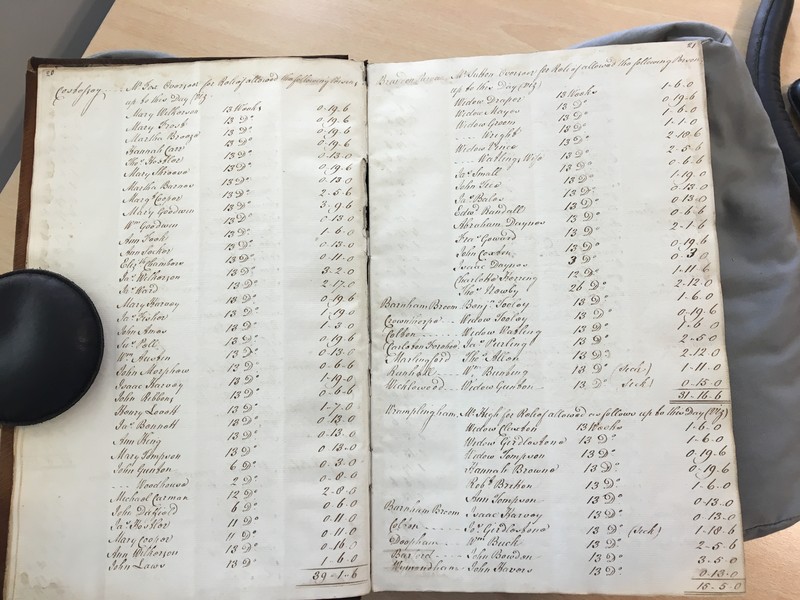 20
Costessey. Mr Fox Overseer for Relief allowed the following Persons
up to this Day (Viz)
Mary Wilkerson 13 Weeks 0-19-6
Mary Frost 13 Do 0-19-6
Martha 13 Do 0-19-6
Hannah Carr 13 Do 0-19-6
Thos Hostler 13 Do 0-13-0
Mary 13 Do 0-19-6
Martha Barnes 13 Do 0-13-0
Margt Cooper 13 Do 2-5-6
Mary Goodwin 13 Do 3-9-6
Wm Goodwin 13 Do 0-13-0
Ann 13 Do 1-6-0
Ann 13 Do 0-13-0
Elizth Chambers 13 Do 0-11-0
Jas Wilkerson 13 Do 3-2-0
Ward 13 Do 2-17-0
Mary Harvey 13 Do 0-19-6
Jas Hostler 13 Do 1-19-0
John 13 Do 1-3-0
13 Do 0-19-6
Wm Austin 13 Do 0-13-0
John 12 Do 0-6-6
Isaac Harvey 13 Do 1-19-0
John Robbins 13 Do 0-6-6
Henry Lovett 13 Do 1-7-0
Jas Bennett 13 Do 0-13-0
Ann King 13 Do 0-13-0
Mary Tompson 13 Do 0-13-0
John Gunton 6 Do 0-3-0
--- Woodhouse 2 Do 0-8-0
Michael Carman 12 Do 2-8-0
John 6 Do 0-6-0
Jas Hostler 11 Do 0-11-0
Mary Cooper 11 Do 0-11-0
Ann Wilkerson 13 Do 0-16-0
John Laws 13 Do 1-6-0
39-1-6
21
Mr Sutton Overseer for Relief allowed the following Persons
up to this Day (Viz)
Widow Draper 13 Weeks 1-6-0
Widow Mayes 13 Do 0-19-6
Widow Green 13 Do 1-6-0
--- Wright 13 Do 1-1-0
Widow 13 Do 2-10-6
--- Watlings Wife 13 Do 2-5-6
Jas Small 13 Do 0-6-6
John 13 Do 1-19-0
Jas Bales 13 Do 0-13-0
Edwd Randall 13 Do 0-13-0
Abraham Daynes 13 Do 0-6-6
Goward 13 Do 2-1-6
John 13 Do 0-19-6
Isaac Daynes 3 Do 0-3-0
Charlotte Herring 12 Do 1-11-6
Thos 26 Do 2-12-0
Barnham Broom Benjn Tooley 13 Do 1-6-0
Crownthorpe Widow Tooley 13 Do 0-19-6
Colton --- Widow Watling 13 Do 1-6-0
Carleton Forehoe Jas Purling 13 Do 2-5-0
Marlingford Thos Allen 13 Do 2-12-0
Runhall --- Wm Bunting 13 Do (Sick) 1-11-0
Wicklewood --- Widow Gunton 13 Do (Sick) 0-15-0
31-16-6
Wramplingham Mr High for Relief allowed as follows up to this Day (Viz)
Widow Clexton 13 Weeks 1-6-0
Widow Girdlestone 13 Do 1-6-0
Widow Tompson 13 Do 0-19-6
Hannah Browne 13 Do 0-19-6
Robt Britton 13 Do 1-6-0
Ann Tompson 13 Do 0-13-0
Barnham Broom Isaac Harvey 13 Do 0-13-0
Colton --- Jos Girdlestone 13 Do (Sick) 1-18-6
Deopham --- Wm Buck 13 Do 2-5-6
Barford --- John Bowden 13 Do 3-5-0
Wymondham --- John Havers 13 Do 0-13-0
15-5-0